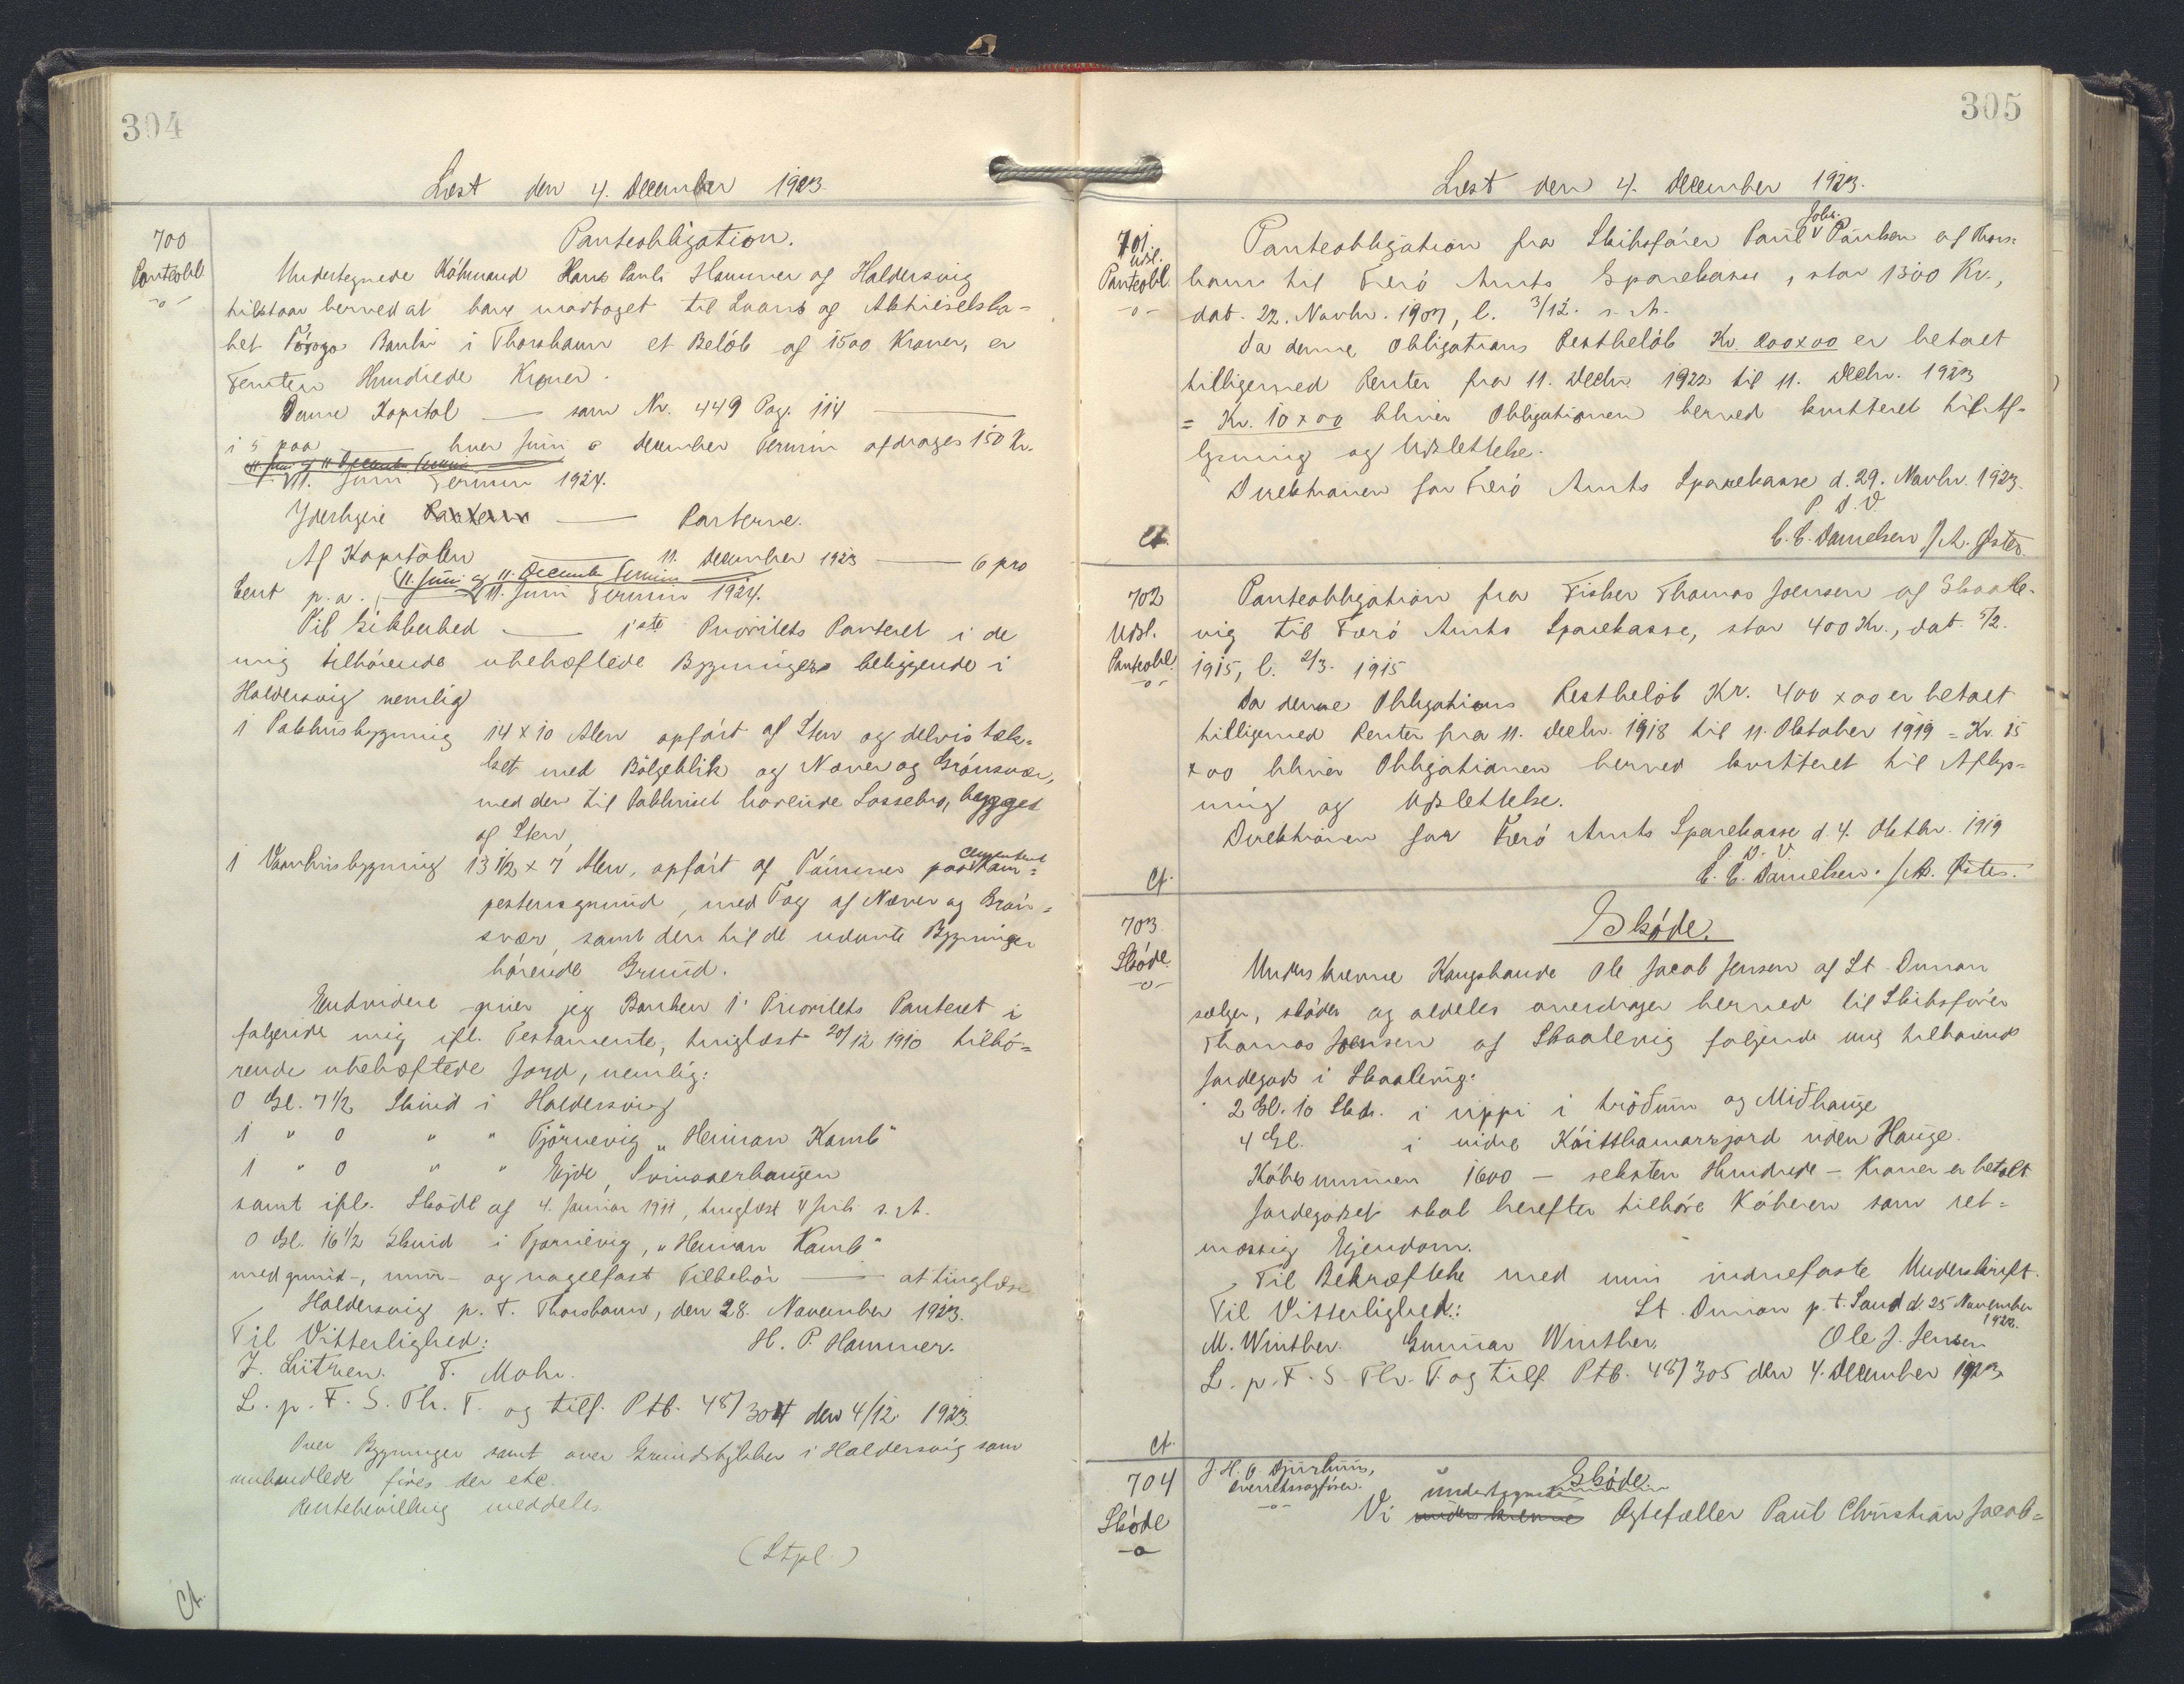 304
Læst den 4. December 1923.
700
Panteobl.
-o-
Panteobligation.
Undertegnede Købmand Hans Pauli Hammer af Haldersvig
tilstaar herved at have modtaget til Laans af Aktieselska-
bet Føroya Banki i Thorshavn et Beløb af 1500 Kroner, er
Femten Hundrede Kroner.
Denne Kapital — som Nr. 449 Pag. 114 —
i 5 paa — hver Juni o December Termin afdrages 150 Kr.
11. Juni og 11 December Termin
11. Juni Termin 1924.
Yderligere Panterne — Parterne.
Af Kapitalen — 11. December 1923 — 6 pro
Cent p. a. (11. Juni og 11. December Termin
11. Juni Termin 1924.
Til Sikkerhed — 1ste Prioritets Panteret i de
mig tilhørende ubehæftede Bygninger beliggende i
Haldersvig nemlig
1 Pakhusbygning 14 x 10 Alen opført af Sten og delvis tæk-
ket med Bölgeblik og Næver og Grønsvær,
med den til Pakhuset hørende Lossebro, bygget
af Sten,
1 Vaanhusbygning 13 1/2 x 7 Alen, opført af Tømmer paa cementeret Kam-
pestensgrund, med Tag af Næver og Grøn-
svær, samt den til de nævnte Bygninger
hørende Grund.
Endvidere giver jeg Banken 1' Prioritets Panteret i
følgende mig ifl. Testamente, tinglæst 20/12 1910 tilhø-
rende ubehæftede Jord, nemlig:
0 Gl. 7 1/2 Skind i Haldersvig
1 " 0 " " Tjörnevig "Heiman Kamb"
1 " 0 " " Ejde, Svinaaerhaugen
samt ifl. Skøde af 4. Januar 1911, tinglæst 4 Juli s. A.
0 Gl. 16 1/2 Skind i Tjørnevig, "Heiman Kamb"
med grund-, mur- og nagelfast Tilbehør — at tinglæse
Haldersvig p. t. Thorshavn, den 28. November 1923.
Til Vitterlighed: H. P. Hammer.
J. Lützen. T. Mohr.
L. p. F. S. Th. T. og tilf. Ptb. 48/304 den 4/12. 1923
Over Bygninger samt over Grundstykker i Haldersvig som
ombandlede føres der etc.
Rentebevilling meddeles.
(Stpl.)
Ct.
305
Læst den 4. December 1923.
701.
Udsl.
Panteobl.
-o-
Panteobligation fra Skibsfører Paul Johs. Paulsen af Thors-
havn til Færø Amts Sparekasse, stor 1300 Kr.,
dat. 22. Novbr. 1907, l. 3/12. s. A.
Da denne Obligations Restbeløb Kr. 200x00 er betalt
tilligemed Renter fra 11. Decbr. 1922 til 11. Decbr. 1923
= Kr. 10 x 00 bliver Obligationen herved kvitteret til Af-
lysning og Udslettelse.
Direktionen for Færø Amts Sparekasse d. 29. Novbr. 1923.
P. D. V.
C. C. Danielsen / A. Øster
Ct.
702
Udsl.
Panteobl.
-o-
Panteobligation fra Fisker Thomas Joensen af Skaale-
vig til Færø Amts Sparekasse, stor 400 Kr., dat. 5/2.
1915, l. 2/3. 1915
Da denne Obligations Restbeløb Kr. 400 x 00 er betalt
tilligemed Renter fra 11. Decbr. 1918 til 11. Oktober 1919 = Kr. 15
x 00 bliver Obligationen herved kvitteret til Aflys-
ning og Udslettelse.
Direktionen for Færø Amts Sparekasse d. 4. Oktbr. 1919
P. D. V.
C. C. Danielsen. / A. Øster.
Ct.
703.
Skøde.
-o-
Skøde.
Underskrevne Kongsbonde Ole Jacob Jensen af St. Dimon
sælger, skøder og aldeles overdrager herved til Skibsfører
Thomas Joensen af Skaalevig følgende mig tilhørende
Jordegods i Skaalevig:
2 Gl. 10 Skd. i uppi i tröðum og Miðhauge
4 Gl. i niðre Káitthamarsjord uden Hauge.
Købesummen 1600 — seksten Hundrede — Kroner er betalt.
Jordegodset skal herefter tilhøre Køberen som ret-
mæssig Ejendom.
Til Bekræftelse med min navnefaste Underskrift.
Til Vitterlighed: St. Dimon p. t. Sand d. 25 November
1922.
M. Winther. Gunnar Winther. Ole J. Jensen
L. p. F. S. Th. T. og tilf. Ptb. 48/305 den 4. December 1923.
Ct.
704
Skøde
-o-
J. H. O. Djurhuus,
Overretssagfører.
-o-
Skøde
Vi undertegnede underskrevne Ægtefæller Paul Christian Jacob-